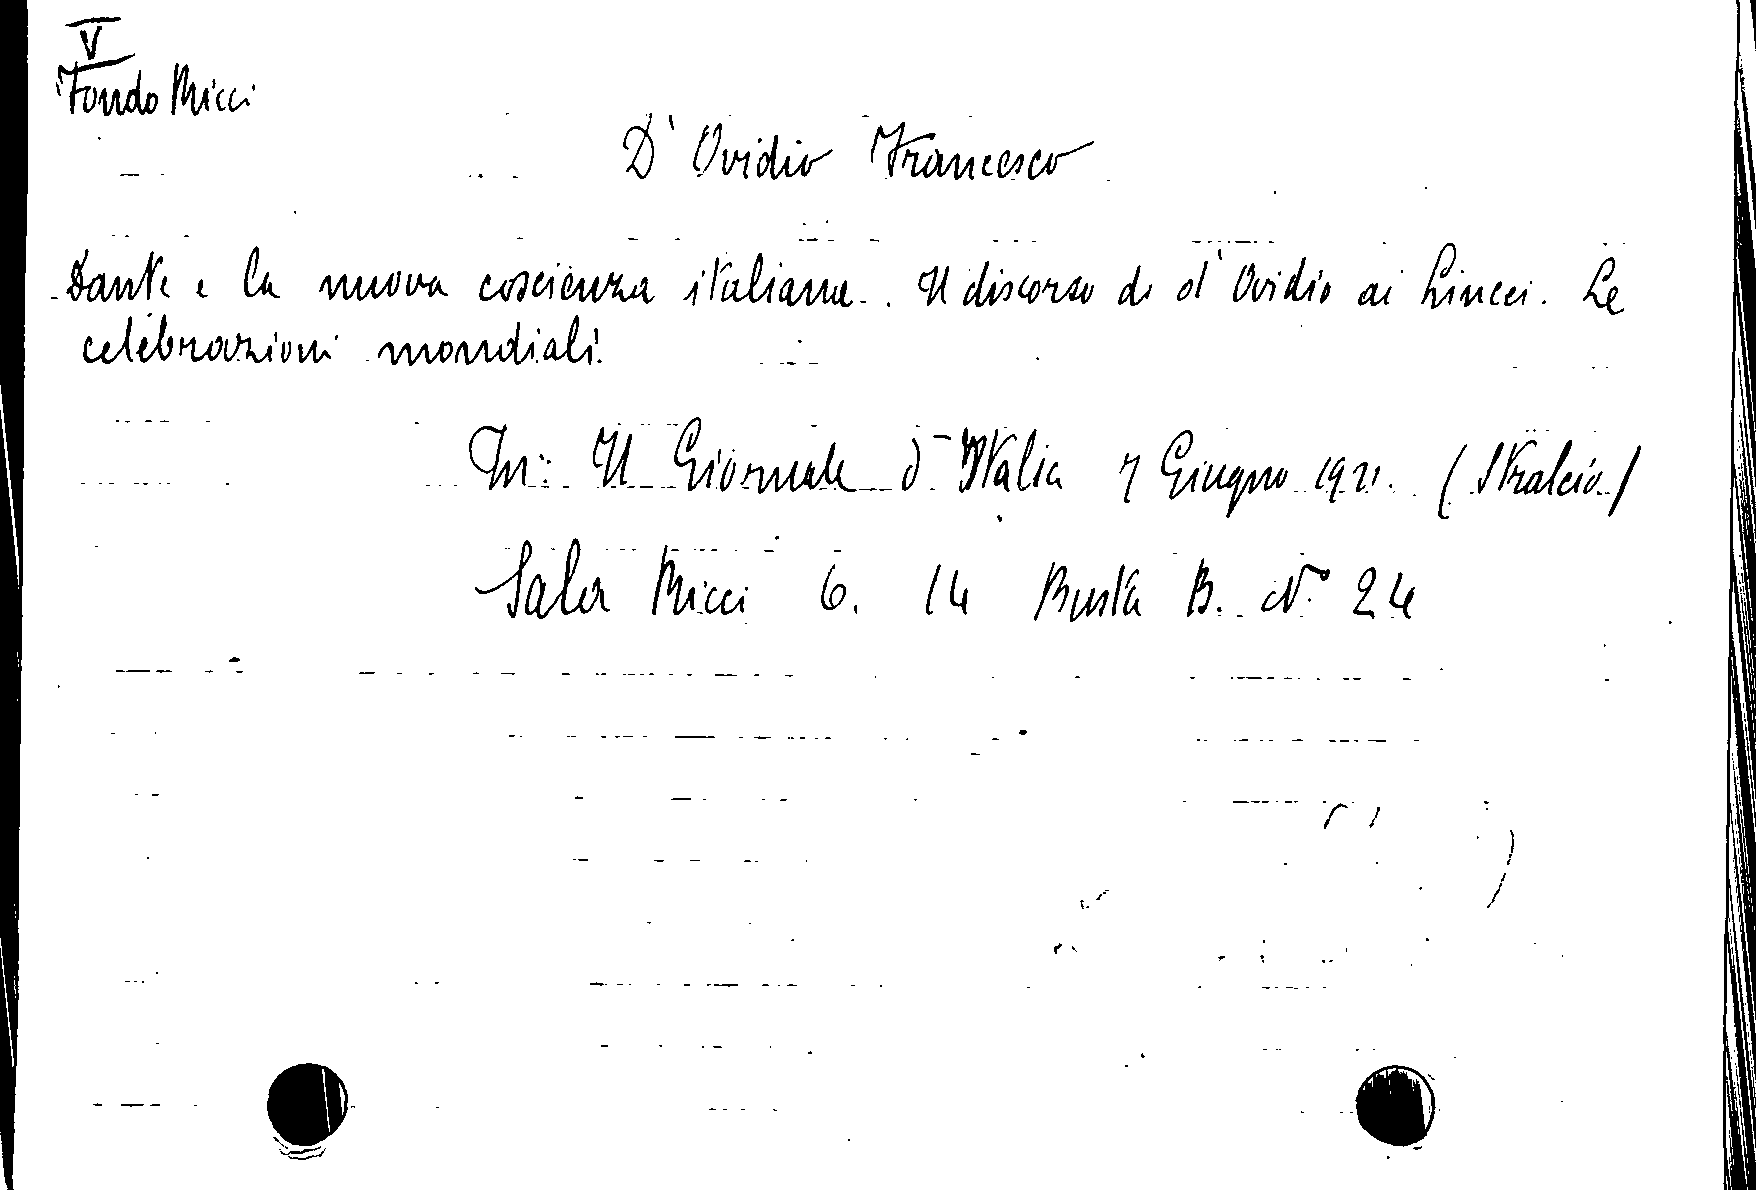 V
Fondo Ricci
D'Ovidio Francesco
Dante e la nuova coscienza italiana. Il discorso di d'Ovidio ai Lincei. Le
celebrazioni mondiali.
In: Il Giornale d'Italia 7 Giugno 1921. (Stralcio)
Sala Ricci 6. 14 Busta B. N° 24